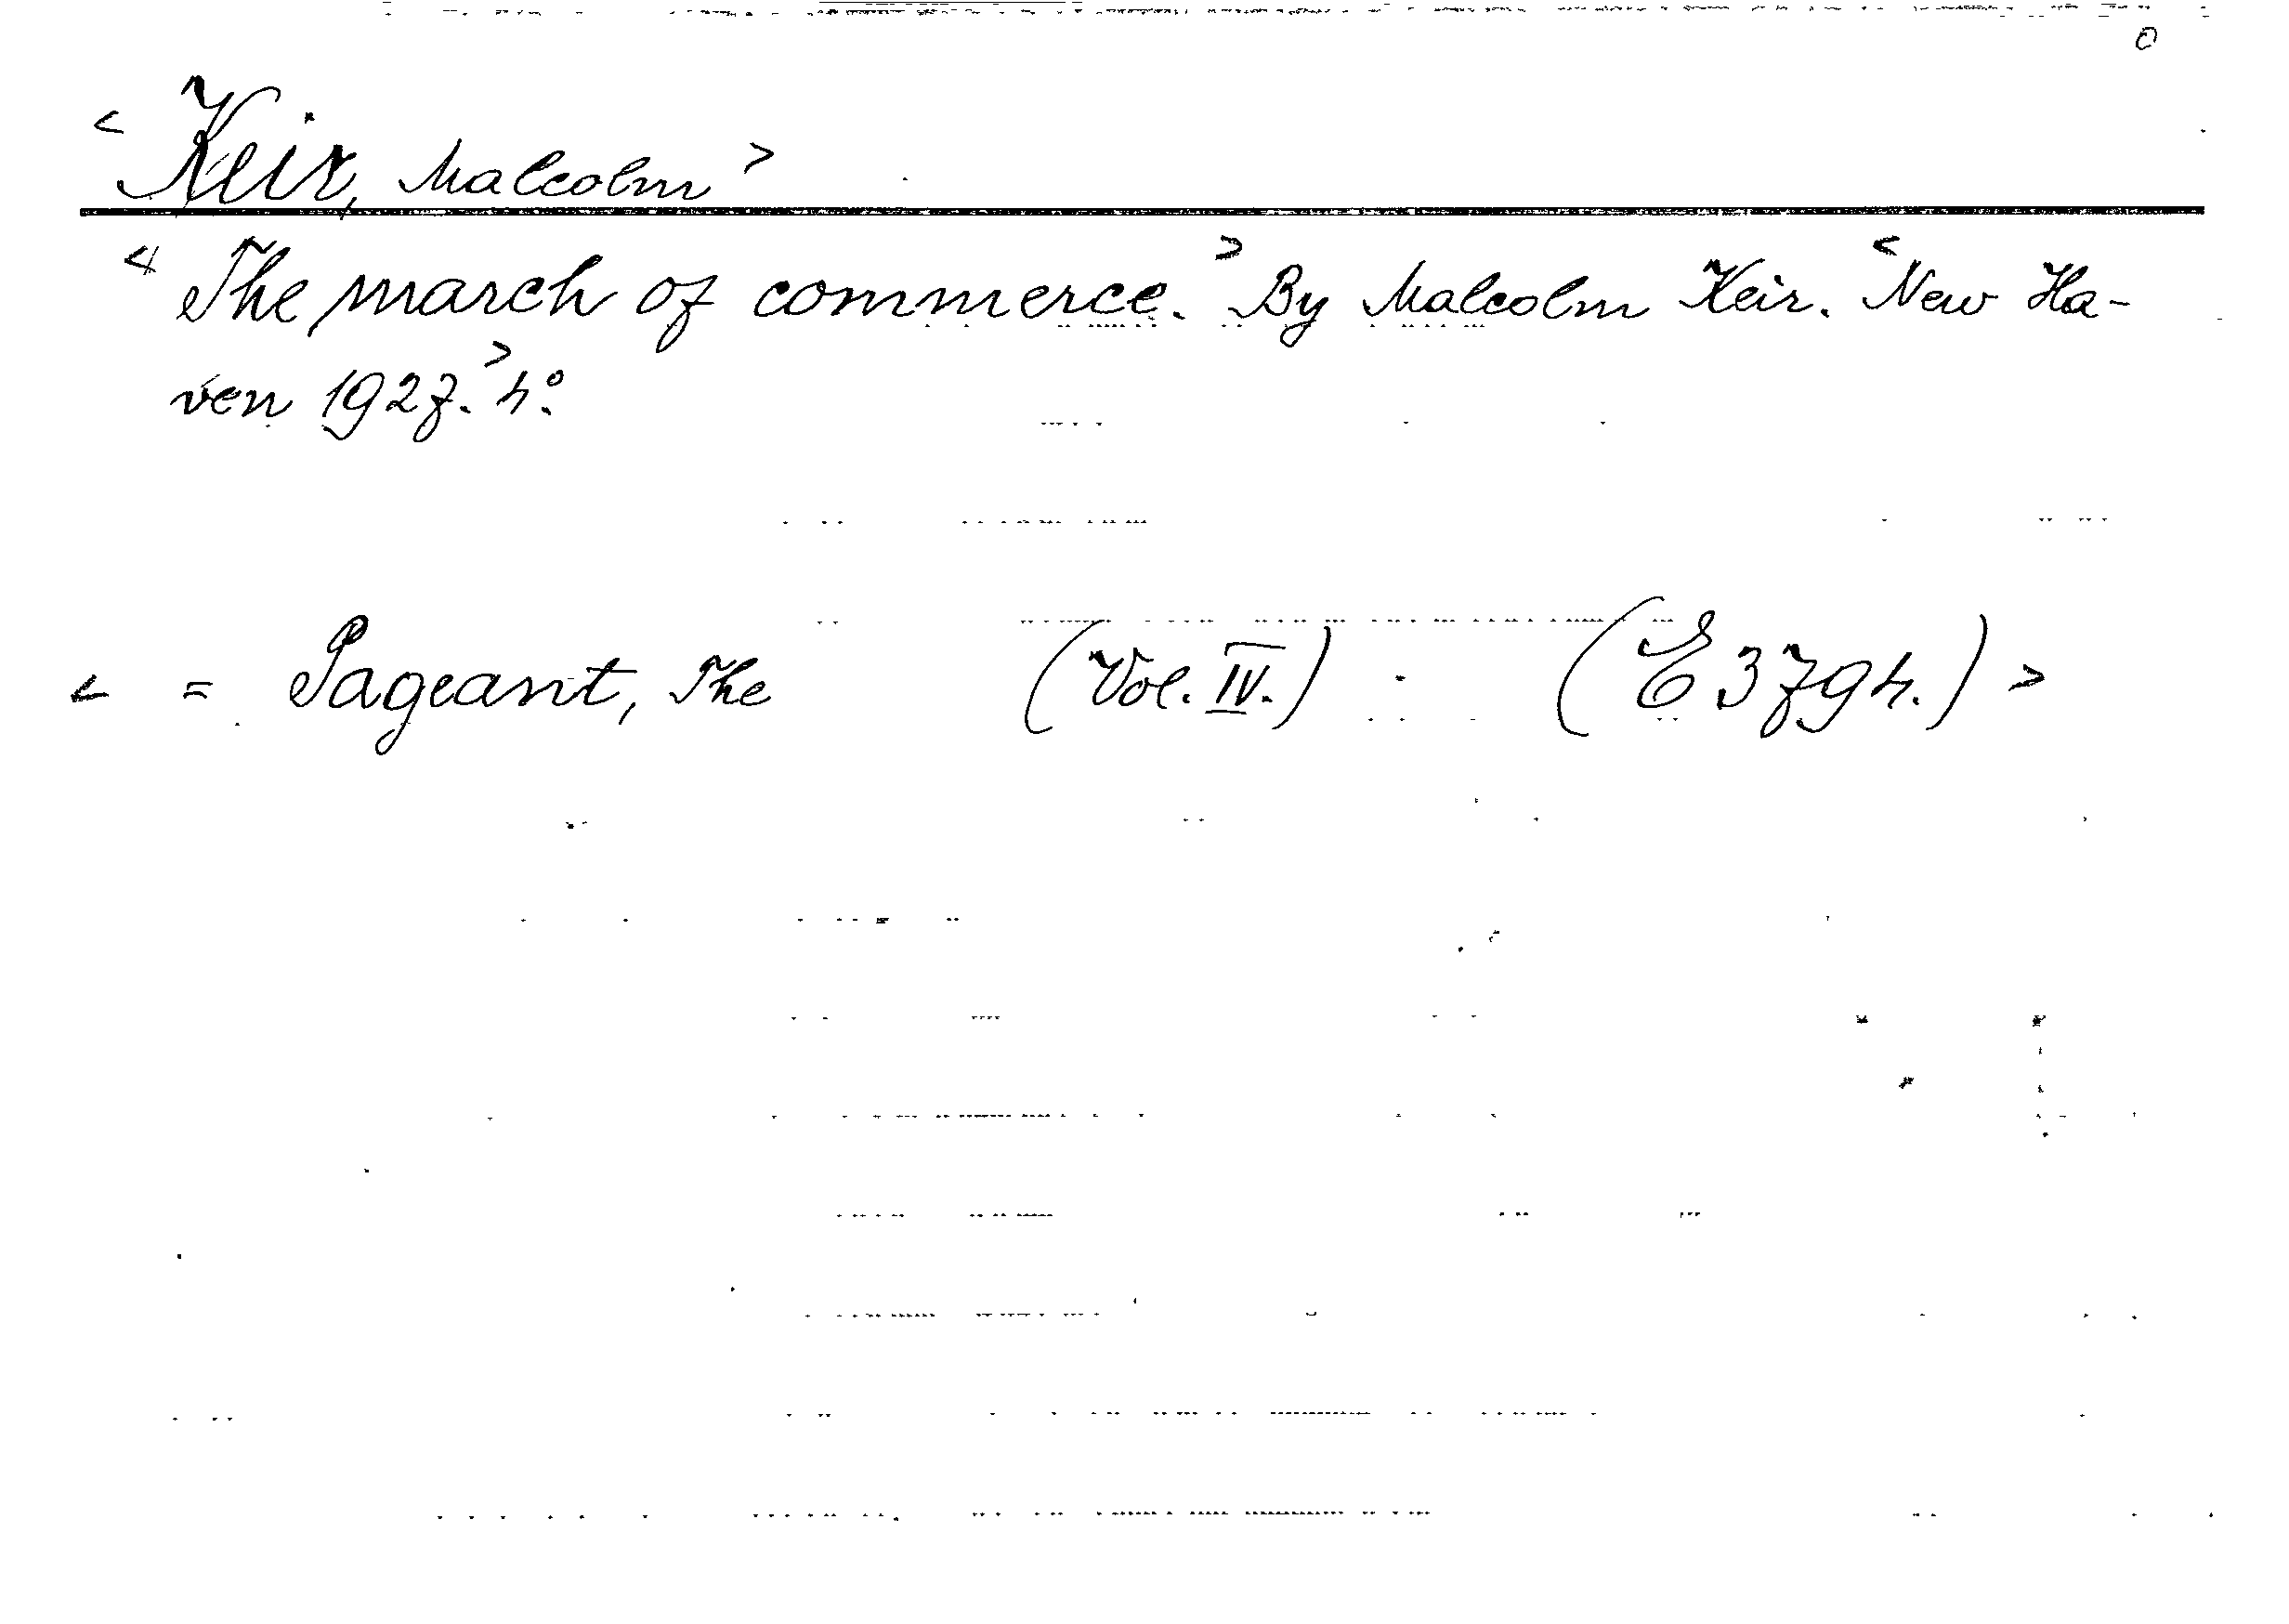 0
< Keir, Malcolm >
< The march of commerce. > By Malcolm Keir. < New Ha-
ven 1927. > 4°.
< = Pageant, The (Vol. IV.) (E 3794.) >